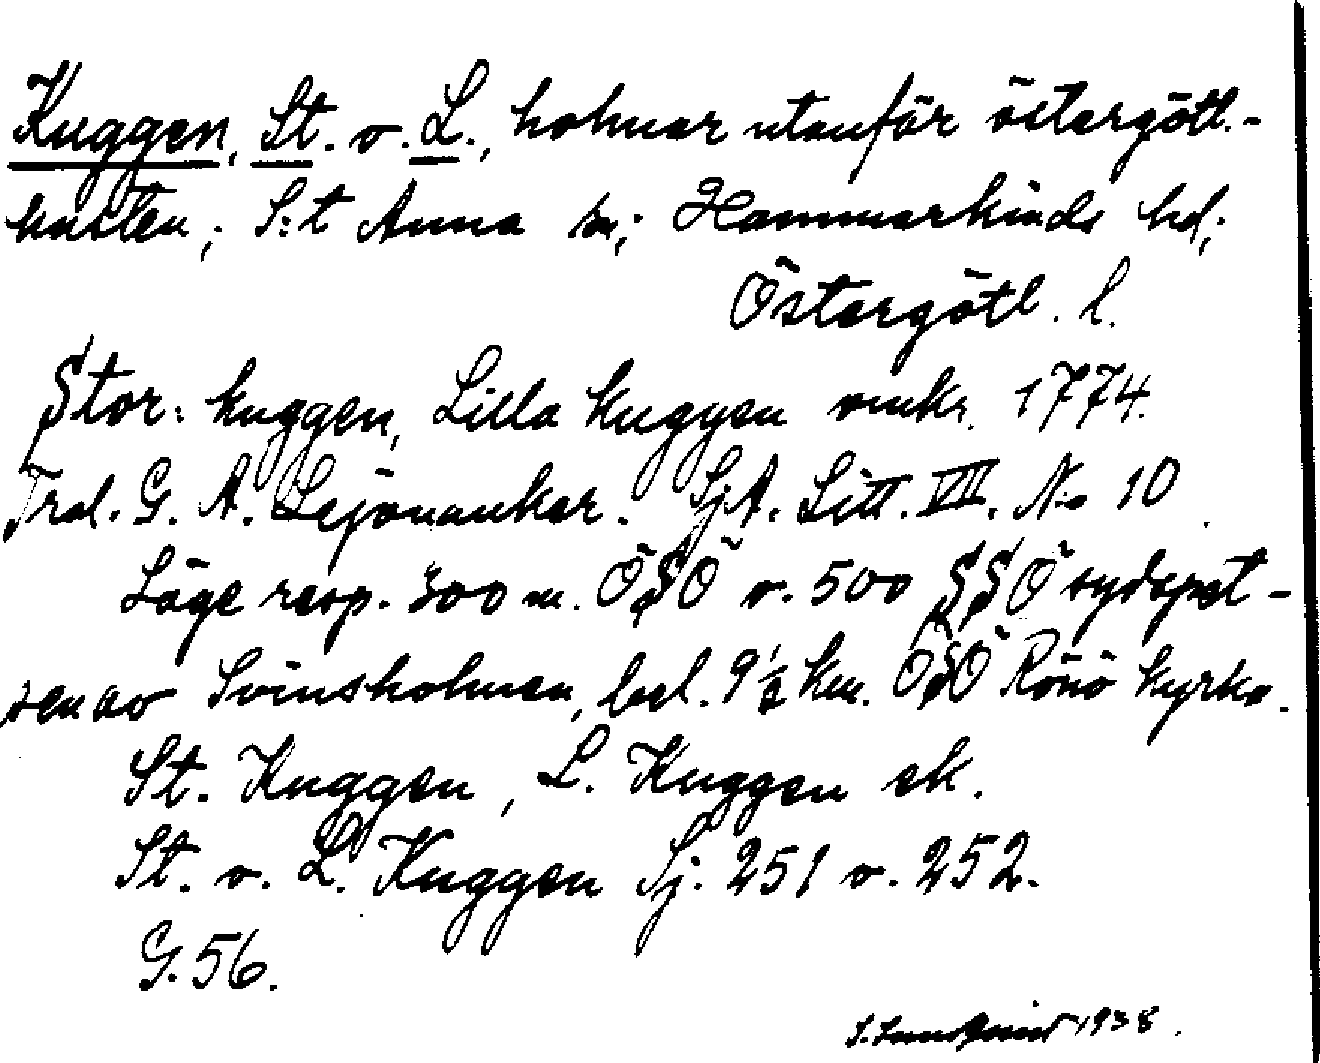 Kuggen, St. o. L., holmar utanför östergötl.-
kusten; S:t Anna sn; Hammarkinds hd;
Östergötl. l.
Stor: kuggen, Lilla kuggen omkr. 1774.
Trol. G. A. Lejonankar. SjA. Litt. VII. No 10.
Läge resp. 300 m. ÖSÖ o. 500 SSÖ sydspet-
sen av Svinsholmen, bel. 9½ km. ÖSÖ Rönö kyrka.
St. Kuggen, L. Kuggen ek.
St. o. L. Kuggen Sj. 251 o. 252.
G. 56.
S. Lundqvist 1938.